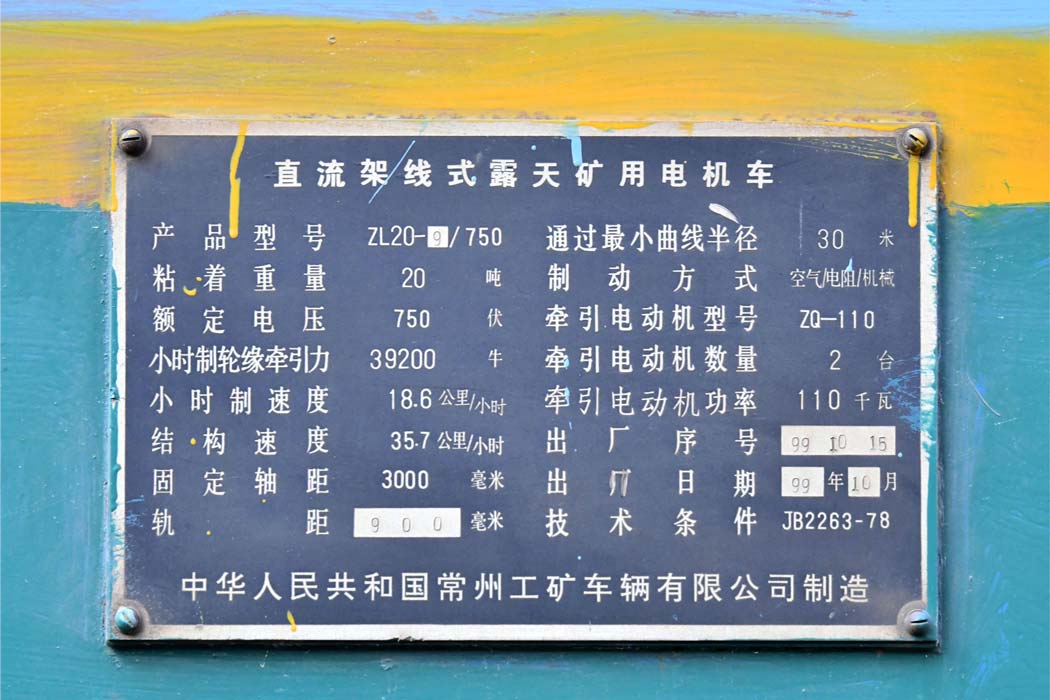 直流架线式露天矿用电机车
产品型号 ZL20-9/750 通过最小曲线半径 30 米
粘着重量 20 吨 制动方式 空气/电阻/机械
额定电压 750 伏 牵引电动机型号 ZQ-110
小时制轮缘牵引力 39200 牛 牵引电动机数量 2 台
小时制速度 18.6 公里/小时 牵引电动机功率 110 千瓦
结构速度 35.7 公里/小时 出厂序号 99 10 15
固定轴距 3000 毫米 出厂日期 99年10月
轨距 900 毫米 技术条件 JB2263-78
中华人民共和国常州工矿车辆有限公司制造